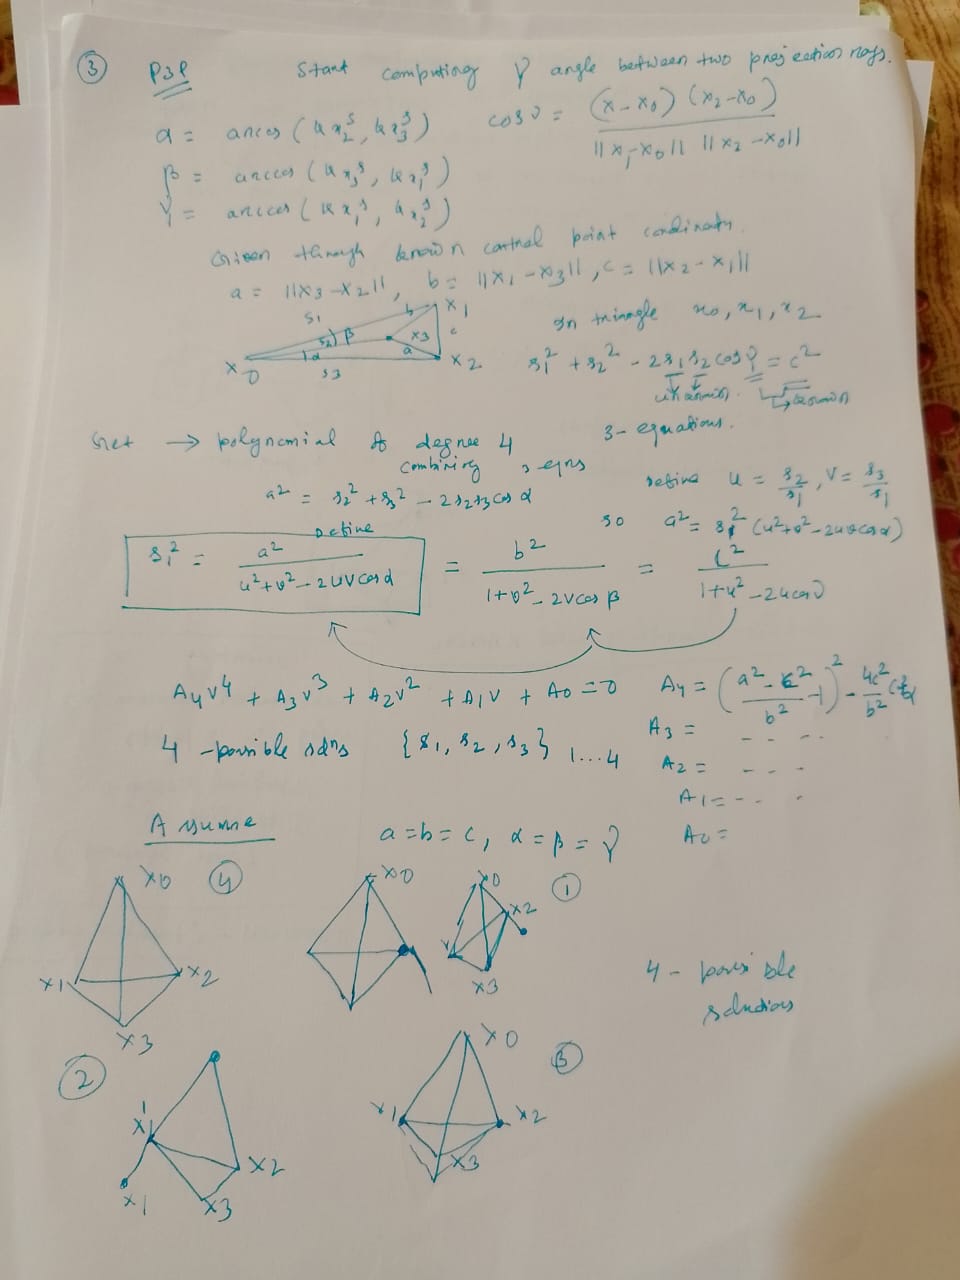 ③ P3P Start computing γ angle between two projection rays.
α = arccos (k x₂ˢ, k x₃ˢ) cos γ = (x - x₀) (x₂ - x₀) / ||x₁ - x₀|| ||x₂ - x₀||
β = arccos (k x₃ˢ, k x₁ˢ)
γ = arccos (k x₁ˢ, k x₂ˢ)
Given through known control point coordinates.
a = ||x₃ - x₂||, b = ||x₁ - x₃||, c = ||x₂ - x₁||
S₁ b x₁
s₂ β x₃ c
α a
x₀ s₃ x₂
In triangle x₀, x₁, x₂
s₁² + s₂² - 2s₁s₂ cos γ = c²
unknown. known
3- equations.
Get → polynomial of degree 4
combining 3 eqns
a² = s₂² + s₃² - 2s₂s₃ cos α
define u = s₂/s₁, v = s₃/s₁
so a² = s₁² (u² + v² - 2uv cos α)
define
s₁² = a² / u² + v² - 2uv cos α = b² / 1 + v² - 2v cos β = c² / 1 + u² - 2u cos γ
A₄v⁴ + A₃v³ + A₂v² + A₁v + A₀ = 0
A₄ = (a² - c² / b² - 1)² - 4c² / b²
A₃ = - - - .
A₂ = - - -
A₁ = - - -
A₀ =
4 - possible solns {s₁, s₂, s₃} 1...4
Assume a = b = c, α = β = γ
x₀ ④
x₁ x₂
x₃
x₀
x₀ ①
x₂
x₃
4 - possible
solutions
②
x₁'
x₁ x₂
x₃
x₀ ③
x₁ x₂
x₃